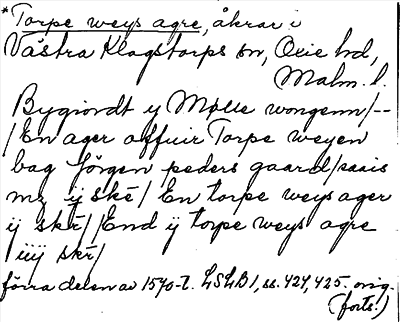 *Torpe weys agre, åkrar i
Västra Klagstorps sn, Oxie hd,
Malm. l.
Bygiordt y Mølle wongenn/--
/En ager offuir Torpe weyen
bag Jörgen peders gaard/saais
mz ij skē/ En torpe weys ager
ij skē/ /End ij torpe weys agre
iiij skē/
förra delen av 1570-t. LSLB1, ss. 424, 425. orig.
(forts.)